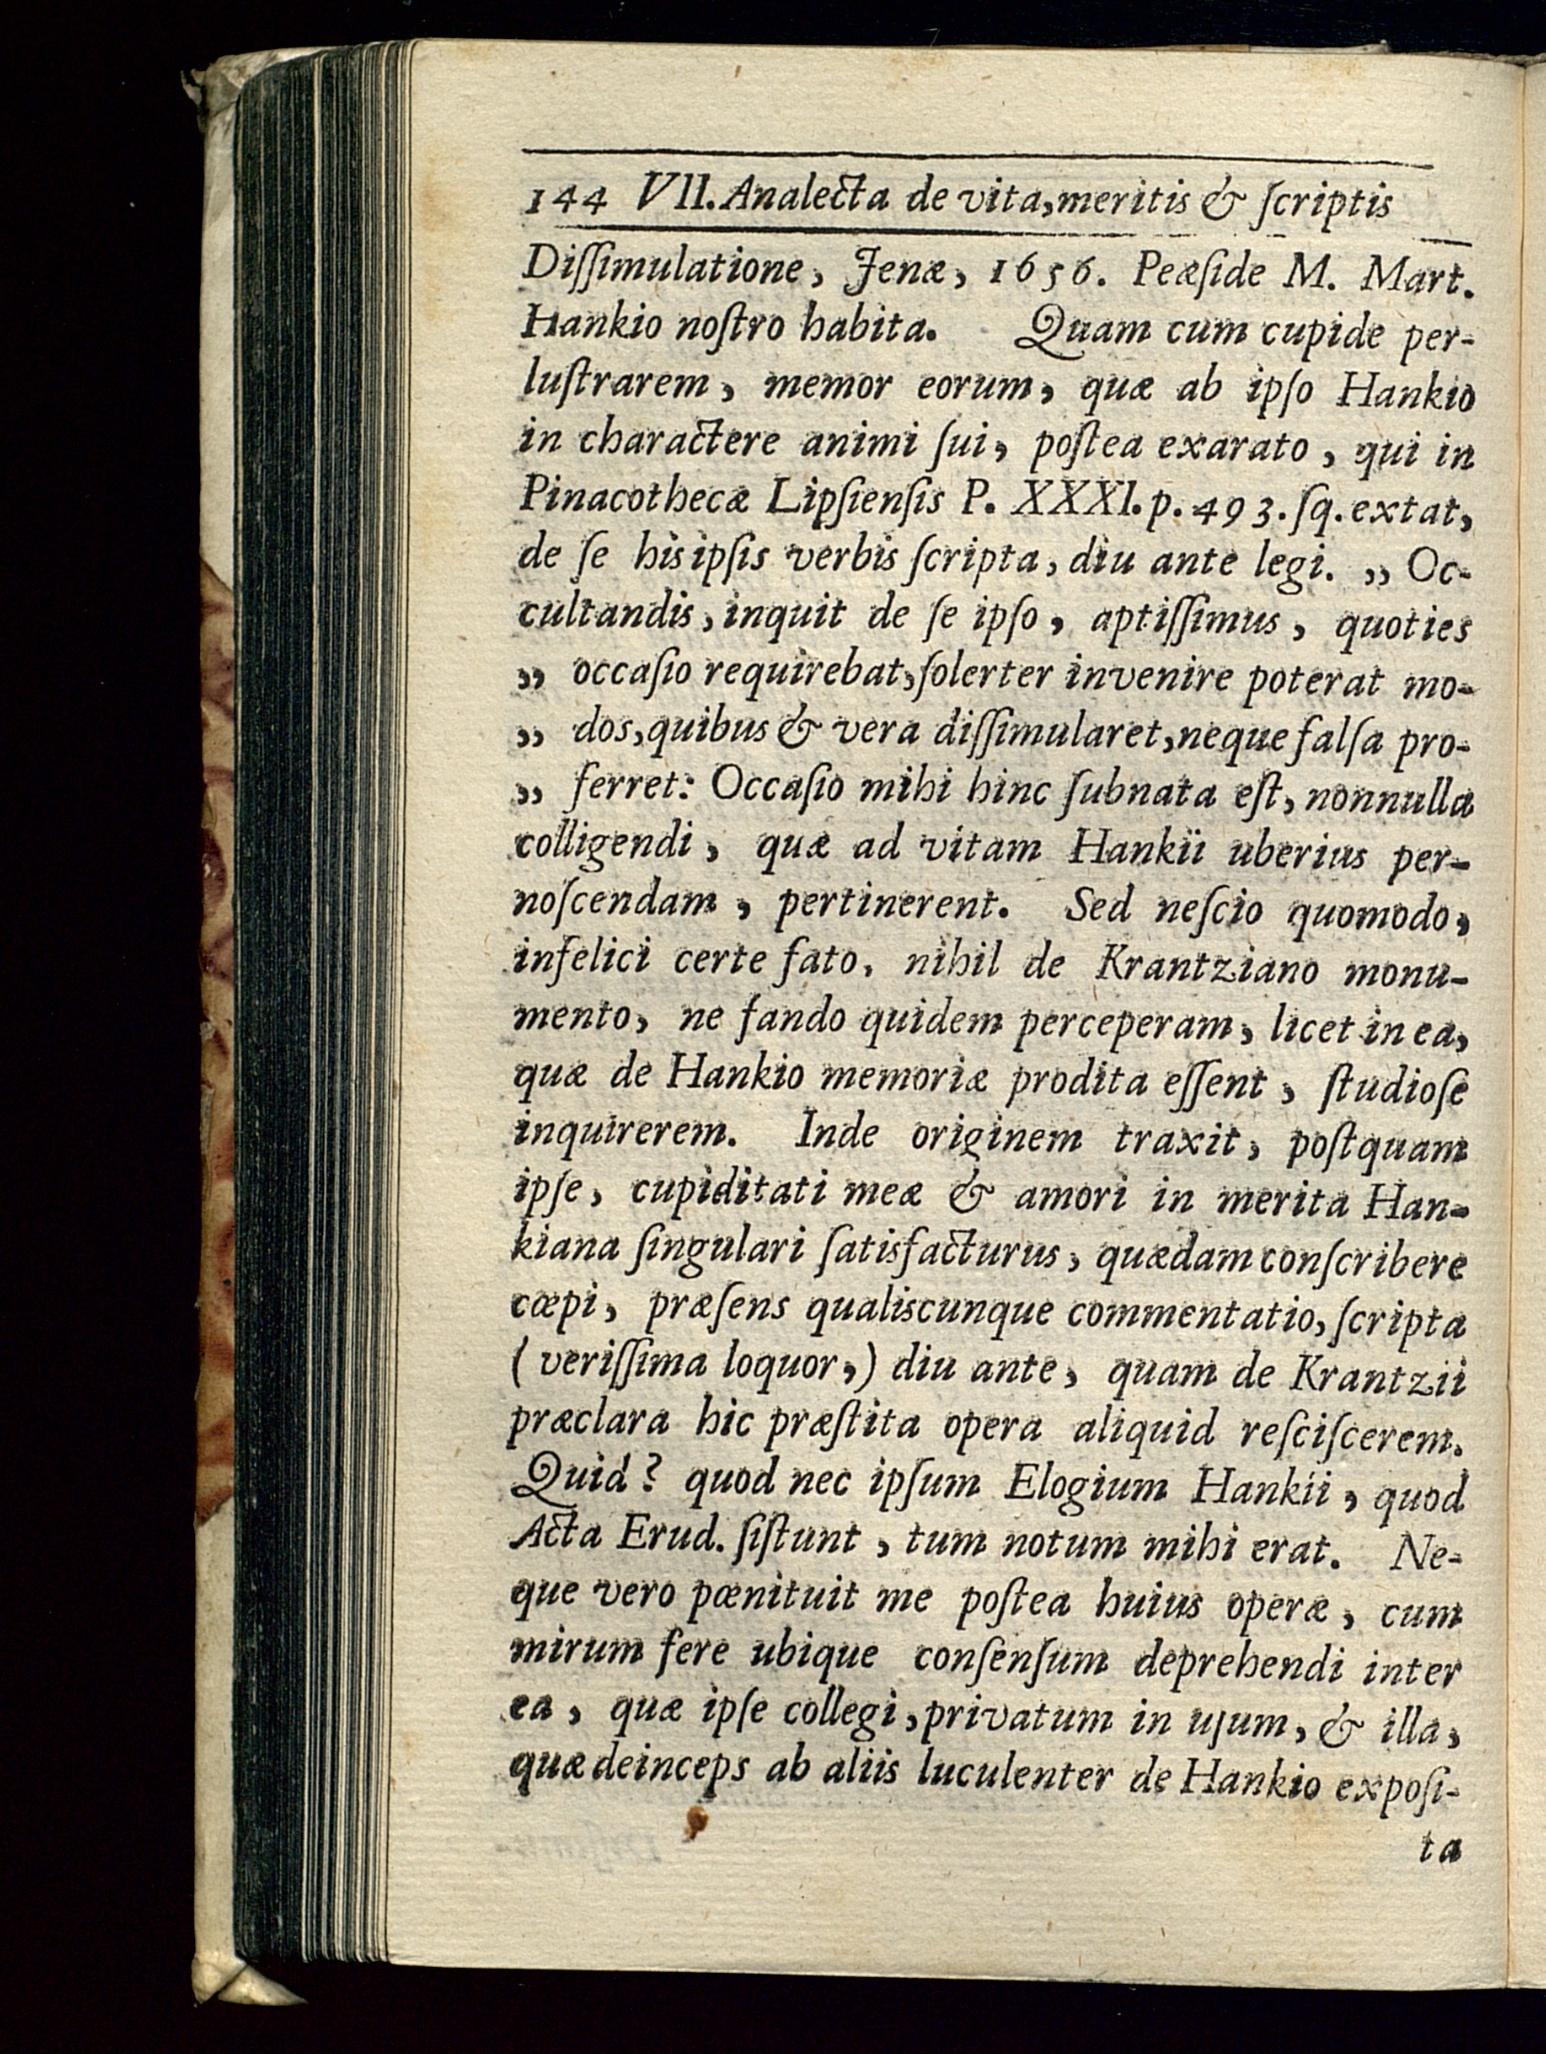 144 VII. Analecta de vita, meritis & ſcriptis
Diſſimulatione, Jenæ, 1656. Peæſide M. Mart.
Hankio noſtro habita. Quam cum cupide per-
luſtrarem, memor eorum, quæ ab ipſo Hankio
in charactere animi ſui, poſtea exarato, qui in
Pinacothecæ Lipſienſis P. XXXI. p. 493. ſq. extat,
de ſe his ipſis verbis ſcripta, diu ante legi. „ Oc-
cultandis, inquit de ſe ipſo, aptiſſimus, quoties
„ occaſio requirebat, ſolerter invenire poterat mo-
„ dos, quibus & vera diſſimularet, neque falſa pro-
„ ferret: Occaſio mihi hinc ſubnata eſt, nonnulla
colligendi, quæ ad vitam Hankii uberius per-
noſcendam, pertinerent. Sed neſcio quomodo,
infelici certe fato, nihil de Krantziano monu-
mento, ne fando quidem perceperam, licet in ea,
quæ de Hankio memoriæ prodita eſſent, ſtudioſe
inquirerem. Inde originem traxit, poſtquam
ipſe, cupiditati meæ & amori in merita Han-
kiana ſingulari ſatisfacturus, quædam conſcribere
cœpi, præſens qualiscunque commentatio, ſcripta
(veriſſima loquor,) diu ante, quam de Krantzii
præclara hic præſtita opera aliquid reſciſcerem.
Quid? quod nec ipſum Elogium Hankii, quod
Acta Erud. ſiſtunt, tum notum mihi erat. Ne-
que vero pœnituit me poſtea huius operæ, cum
mirum fere ubique conſenſum deprehendi inter
ea, quæ ipſe collegi, privatum in uſum, & illa,
quæ deinceps ab aliis luculenter de Hankio expoſi-
ta